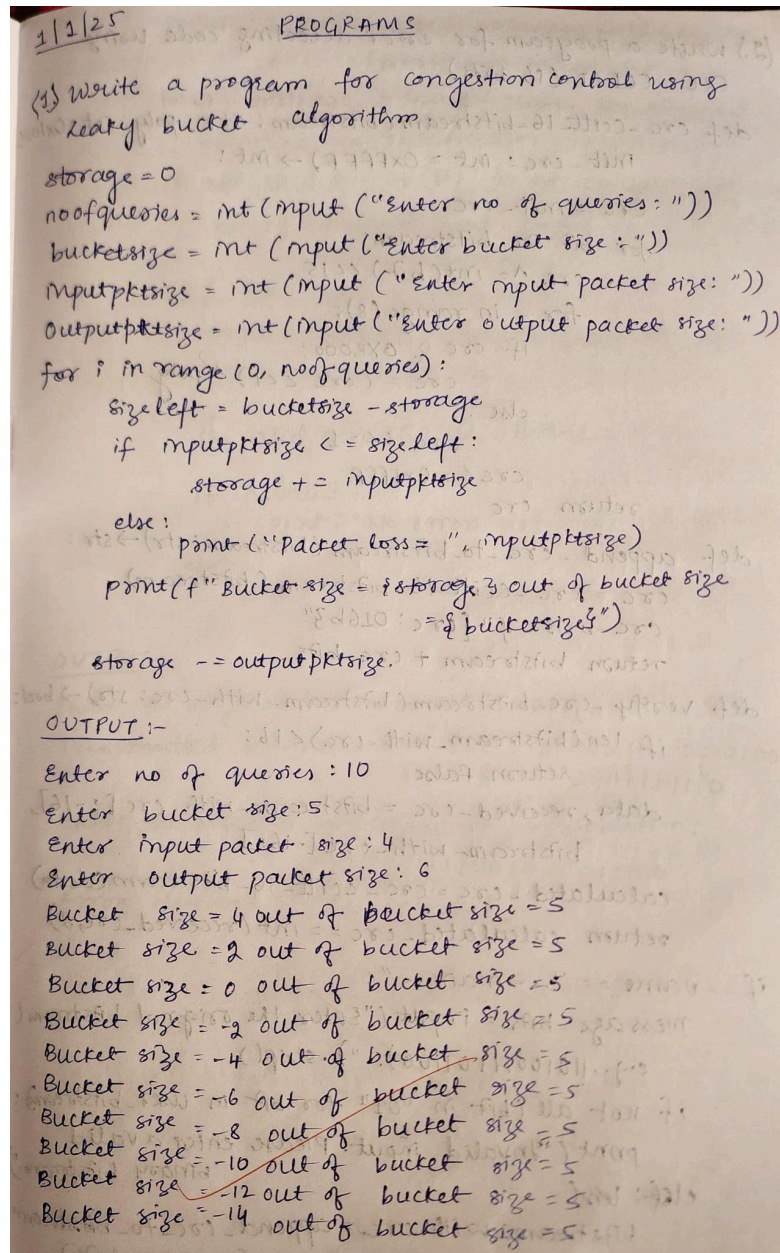 1/1/25 PROGRAMS
(1) Write a program for congestion control using
Leaky bucket algorithm.
storage = 0
noofqueries = int (input ("Enter no of queries: "))
bucketsize = int (input ("Enter bucket size : "))
inputpktsize = int (input ("Enter input packet size: "))
outputpktsize = int (input ("Enter output packet size: "))
for i in range (0, noofqueries) :
sizeleft = bucketsize - storage
if inputpktsize <= sizeleft :
storage += inputpktsize
else :
print ("Packet loss = ", inputpktsize)
print (f" Bucket size = {storage} out of bucket size
= {bucketsize}") .
storage -= outputpktsize.
OUTPUT :-
Enter no of queries : 10
Enter bucket size : 5
Enter input packet size : 4
Enter output packet size : 6
Bucket size = 4 out of bucket size = 5
Bucket size = 2 out of bucket size = 5
Bucket size = 0 out of bucket size = 5
Bucket size = -2 out of bucket size = 5
Bucket size = -4 out of bucket size = 5
Bucket size = -6 out of bucket size = 5
Bucket size = -8 out of bucket size = 5
Bucket size = -10 out of bucket size = 5
Bucket size = -12 out of bucket size = 5
Bucket size = -14 out of bucket size = 5